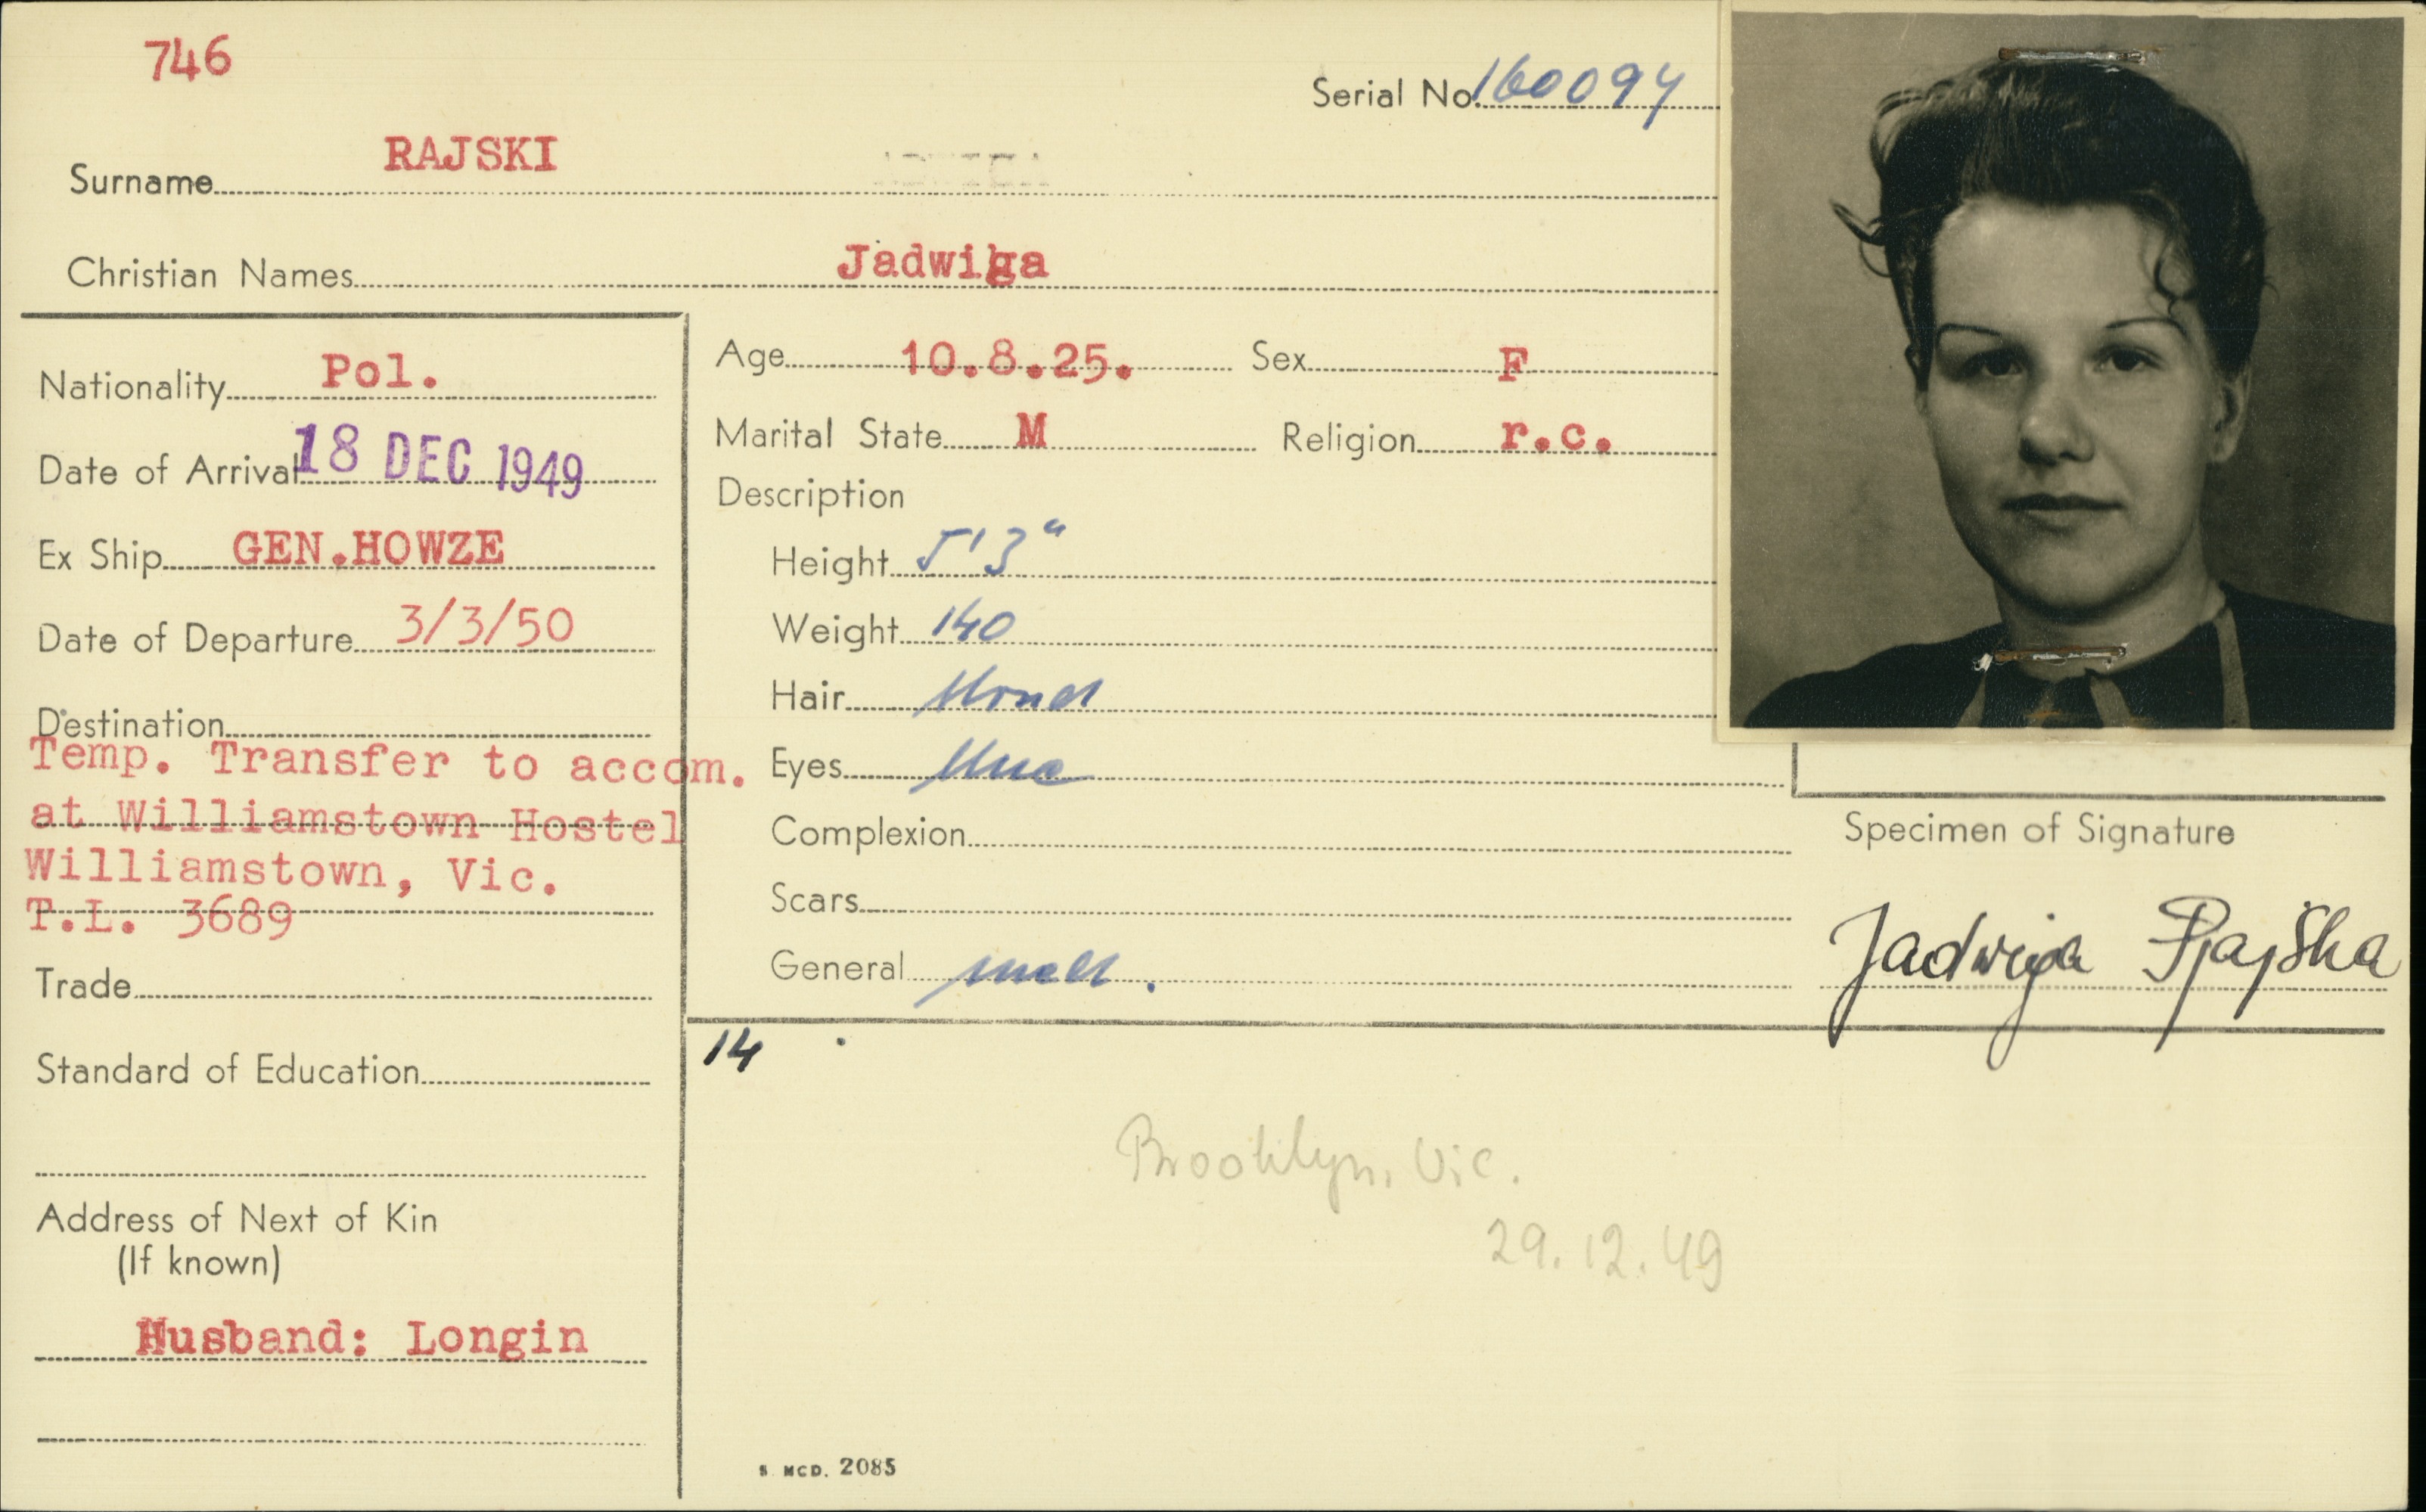 746
Serial No. 160094
Surname RAJSKI
Christian Names Jadwiga
Nationality Pol.
Date of Arrival 18 DEC 1949
Ex Ship GEN.HOWZE
Date of Departure 3/3/50
Destination
Temp. Transfer to accom.
at Williamstown Hostel
Williamstown, Vic.
T.L. 3689
Trade
Standard of Education
Address of Next of Kin
(If known)
Husband: Longin
Age 10.8.25. Sex F
Marital State M Religion r.c.
Description
Height 5'3"
Weight 140
Hair blond
Eyes blue
Complexion
Scars
General well.
Specimen of Signature
Jadwiga Rajska
14
Brooklyn, Vic.
29.12.49
S. MCD. 2085